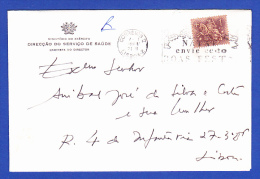 MINISTÉRIO DO EXÉRCITO
DIRECÇÃO DO SERVIÇO DE SAÚDE
GABINETE DO DIRECTOR
NA
envie cedo
BOAS FEST
Exmo Senhor
Aníbal José da Silva e Costa
e sua mulher
R. 4 de Infantaria 27-3º
Lisboa